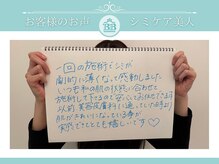 お客様のお声
シミケア美人
一回の施術でシミが
劇的に薄くなって感動しました。
いつも私の肌の状態に合わせて
施術して下さるので安心してお任せできます。
以前、美容皮膚科に通っていた時より
肌がきれいになっている事が
実感できてとても嬉しいです♡